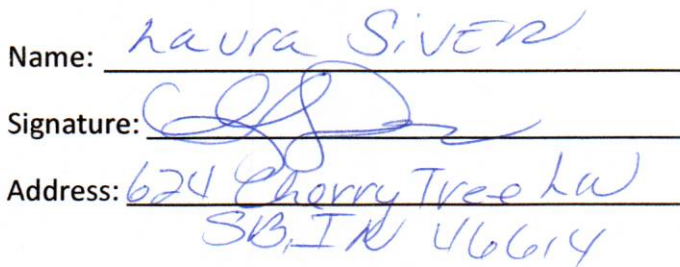 Name: Laura Siver
Signature:
Address: 624 Cherry Tree LN
SB, IN 46614